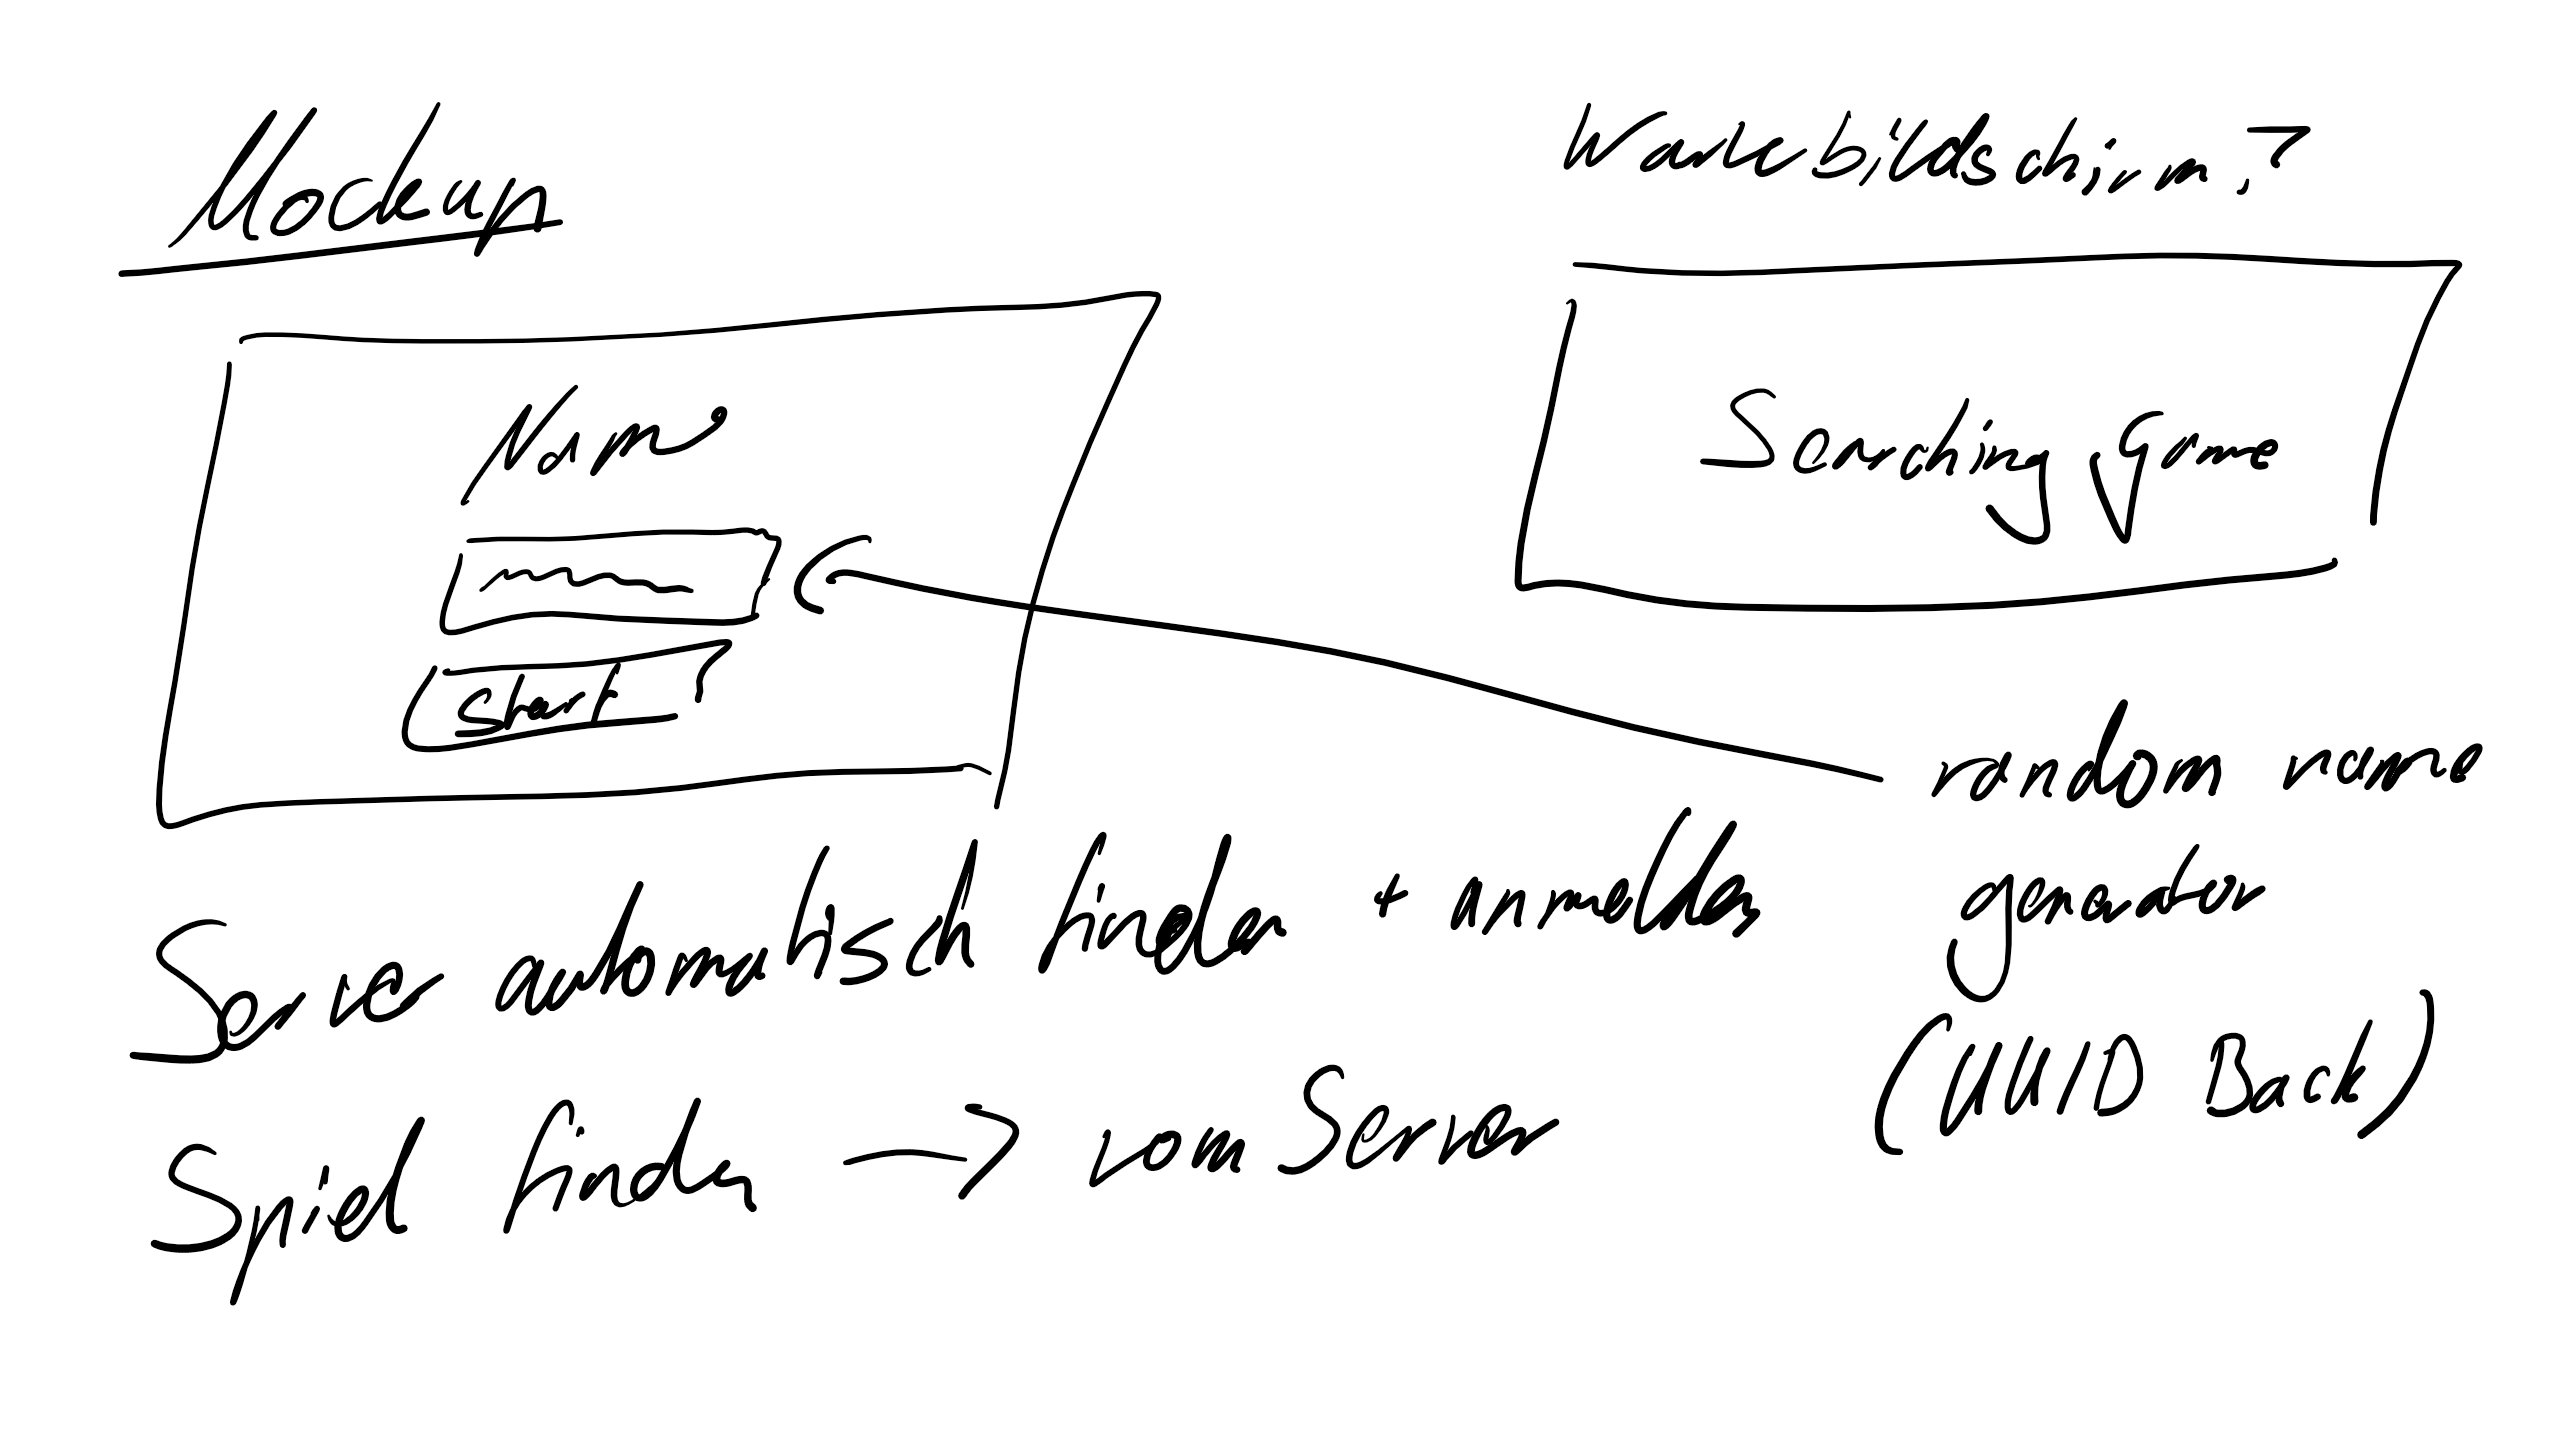 Mockup
Wartebildschirm?
Name
Start
Searching Game
random name
generator
(UUID Back)
Server automatisch finden + anmelden
Spiel finden → vom Server